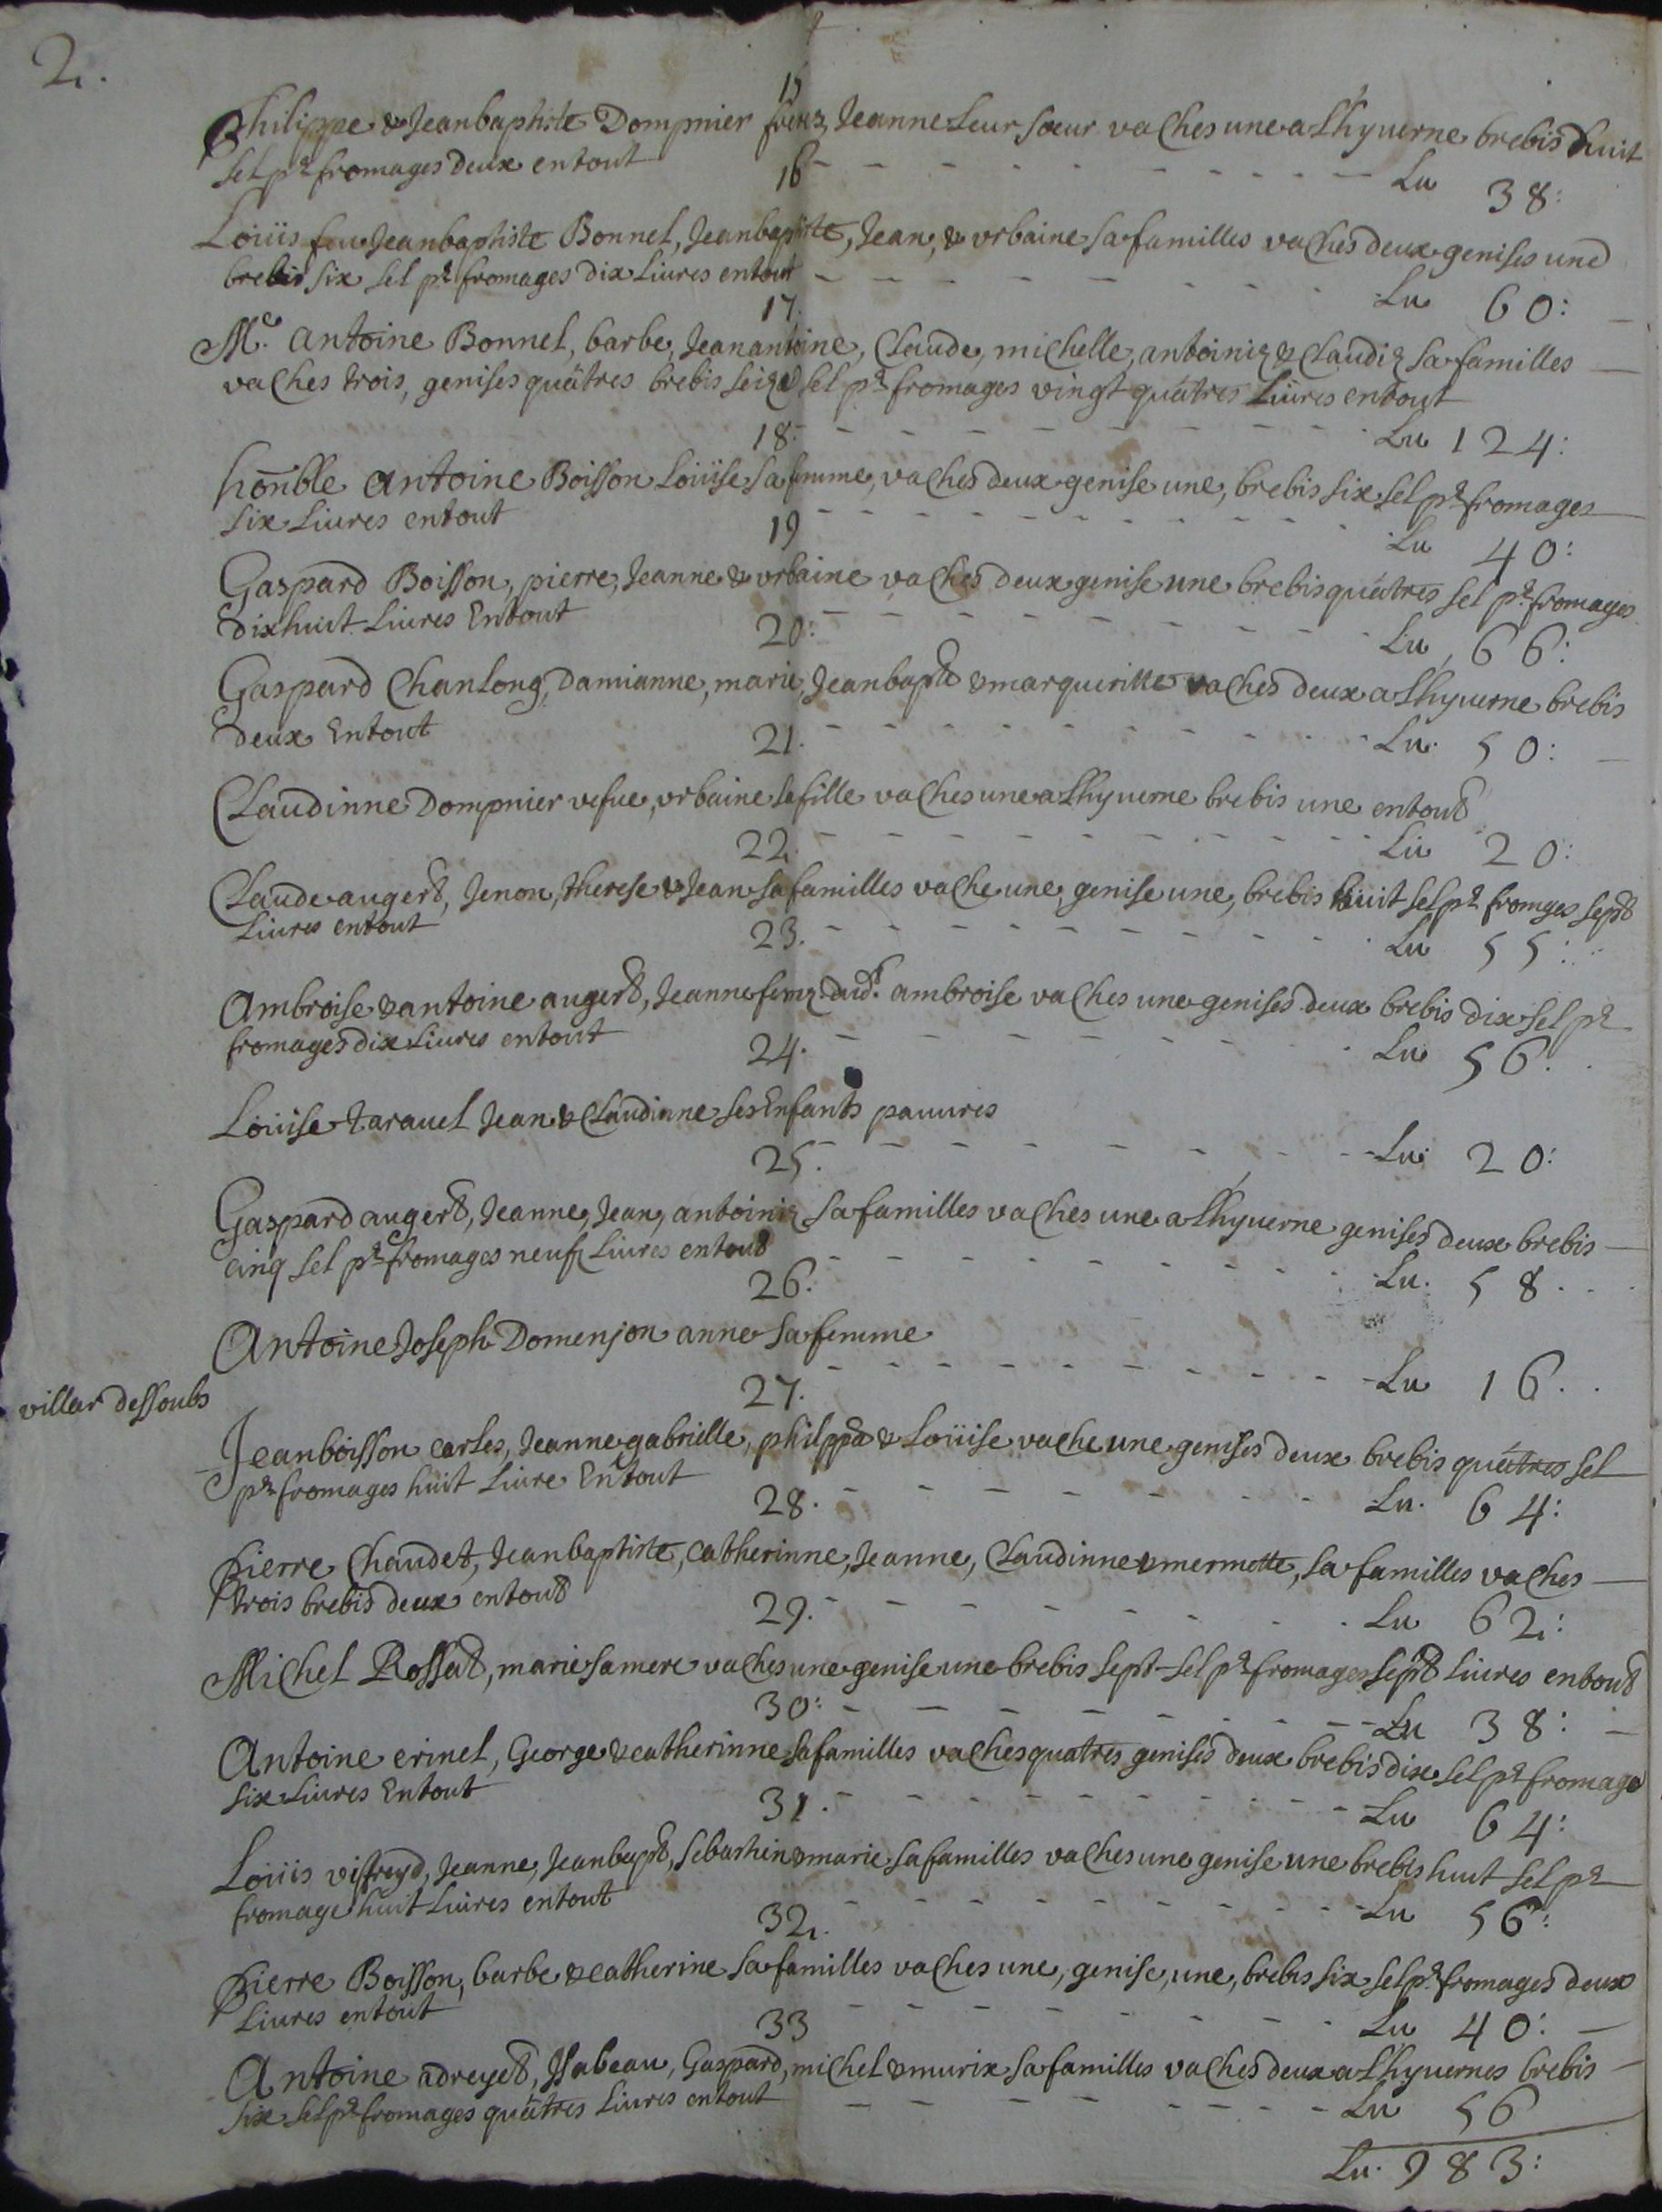 2.
15
Philippe & Jeanbaptiste Dompnier freres Jeanne Leur soeur vaches une a Lhyuerne brebis huit
sel pr fromages deux entout Lu 38:
16
Loüis feu Jeanbaptiste Bonnel, Jeanbaptiste, Jean, & vrbaine sa familles vaches deux genises une
brebis six sel pr fromages dix Liures entout Lu 60:
17.
Me. antoine Bonnel, barbe, Jeanantoine, Claude, michelle, antoinie & Claudie sa familles
vaches trois, genises quätres brebis seize sel pr fromages vingt quätres Liures entout
Lu 124:
18:
honble antoine Boisson Loüise sa femme, vaches deux genise une, brebis six sel pr fromages
six Liures entout Lu 40:
19
Gaspard Boisson, pierre, Jeanne & vrbaine vaches deux genise une brebis quätres sel pr fromages
dixhuit Liures Entout Lu 66:
20:
Gaspard Chanlong, Damianne, marie, Jeanbapte & margueritte vaches deux a Lhyuerne brebis
deux Entout Lu. 50:
21.
Claudinne Dompnier vefue, vrbaine sa fille vaches une a Lhyuerne brebis une entout
Lu 20:
22.
Claude augert, Jenon, therese & Jean sa familles vache une, genise une, brebis huit sel pr fromges sept
Liures entout Lu 55:
23.
Ambroise & antoine augert, Jeanne feme. dud. ambroise vaches une genises deux brebis dix sel pr
fromages dix Liures entout Lu 56.
24.
Loüise taravel Jean & Claudinne ses Enfants pauures
Lu 20:
25.
Gaspard augert, Jeanne, Jean, antoinie sa familles vaches une a Lhyuerne genises deux brebis
cinq sel pr fromages neuf Liures entout Lu. 58.
26:
Antoine Joseph Domenjon anne sa femme
Lu 16.
27.
villar dessoubs
Jean boisson carles, Jeanne gabrielle, philippa & Loüise vache une genises deux brebis quätres sel
pr fromages huit Liure Entout Lu. 64:
28.
pierre Chaudet, Jeanbaptiste, catherinne, Jeanne, Claudinne & mermette, sa familles vaches
trois brebis deux entout Lu 62:
29.
Michel Rossat, marie sa mere vaches une genise une brebis sept sel pr fromages sept Liures entout
Lu 38:
30:
Antoine crinel, George & catherinne sa familles vaches quatres genises deux brebis dix sel pr fromage
six Liures Entout Lu 64:
31.
Loüis viffreyd, Jeanne, Jeanbapt, sebastien & marie sa familles vaches une genise une brebis huit sel pr
fromage huit Liures entout Lu 56:
32.
pierre Boisson, barbe & catherine sa familles vaches une, genise, une, brebis six sel pr fromages deux
Liures entout Lu 40:
33
Antoine adreyet, Jsabeau, Gaspard, michel & murix sa familles vaches deux a Lhyuernes brebis
six sel pr fromages quätres Liures entout Lu 56
Lu. 983: